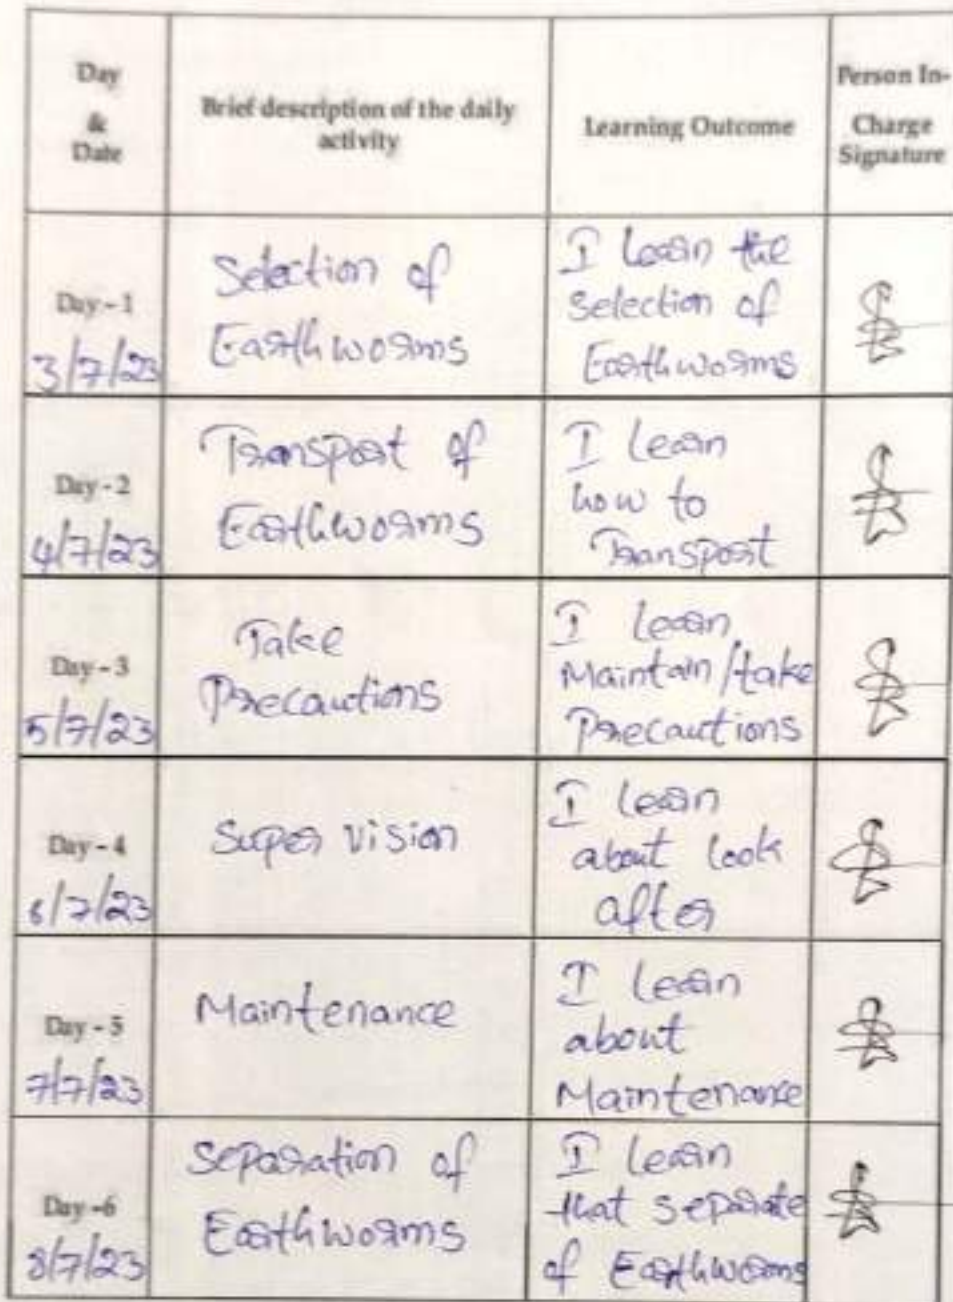 Day
&
Date
Brief description of the daily
activity
Learning Outcome
Person In-
Charge
Signature
Day - 1
3/7/23
Selection of
Earthworms
I learn the
selection of
Earthworms
Day - 2
4/7/23
Transport of
Earthworms
I learn
how to
Transport
Day - 3
5/7/23
Take
Precautions
I learn
Maintain/take
Precautions
Day - 4
6/7/23
Super vision
I learn
about look
after
Day - 5
7/7/23
Maintenance
I learn
about
Maintenance
Day -6
8/7/23
Separation of
Earthworms
I learn
that separate
of Earthworms